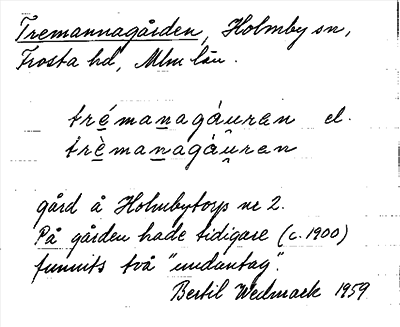 Tremannagården, Holmby sn,
Frosta hd, Mlm län.
trémanagáuren el.
trèmanagáuren
gård å Holmbytorp nr 2.
På gården hade tidigare (c. 1900)
funnits två "undantag".
Bertil Wedmark 1959